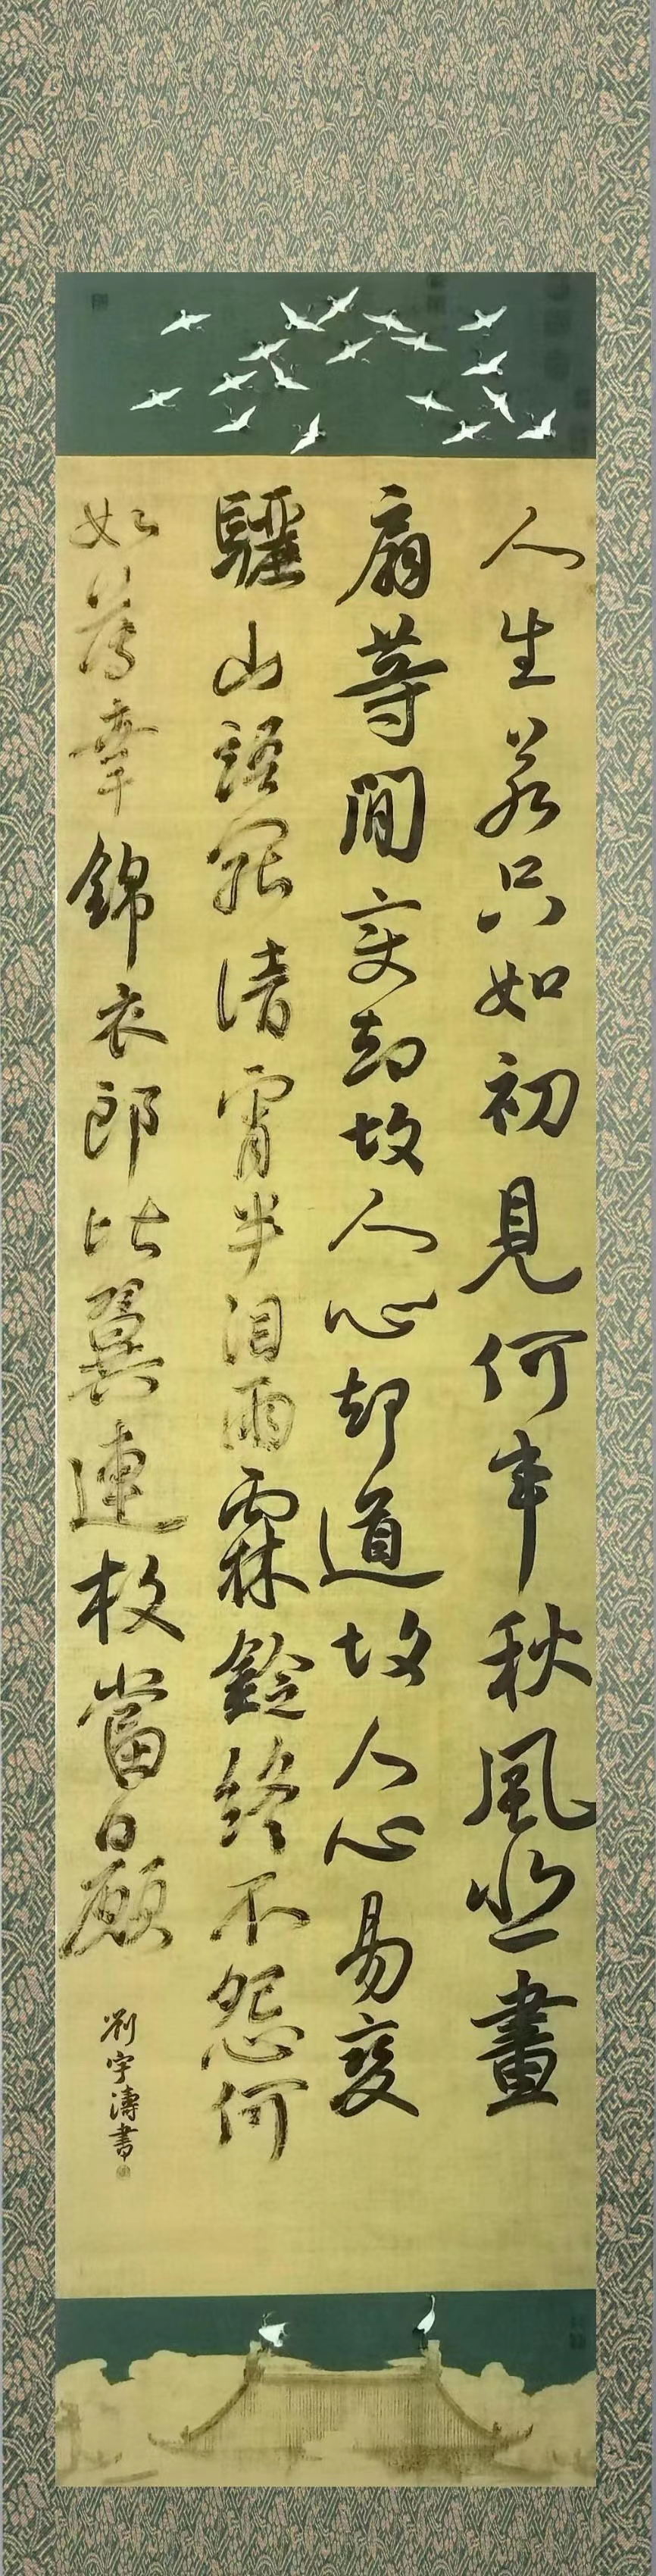 人生若只如初見何事秋風悲畫
扇等閒變却故人心却道故人心易變
驪山語罷清宵半泪雨霖鈴終不怨何
如薄幸錦衣郎比翼連枝當日願
劉宇濤書